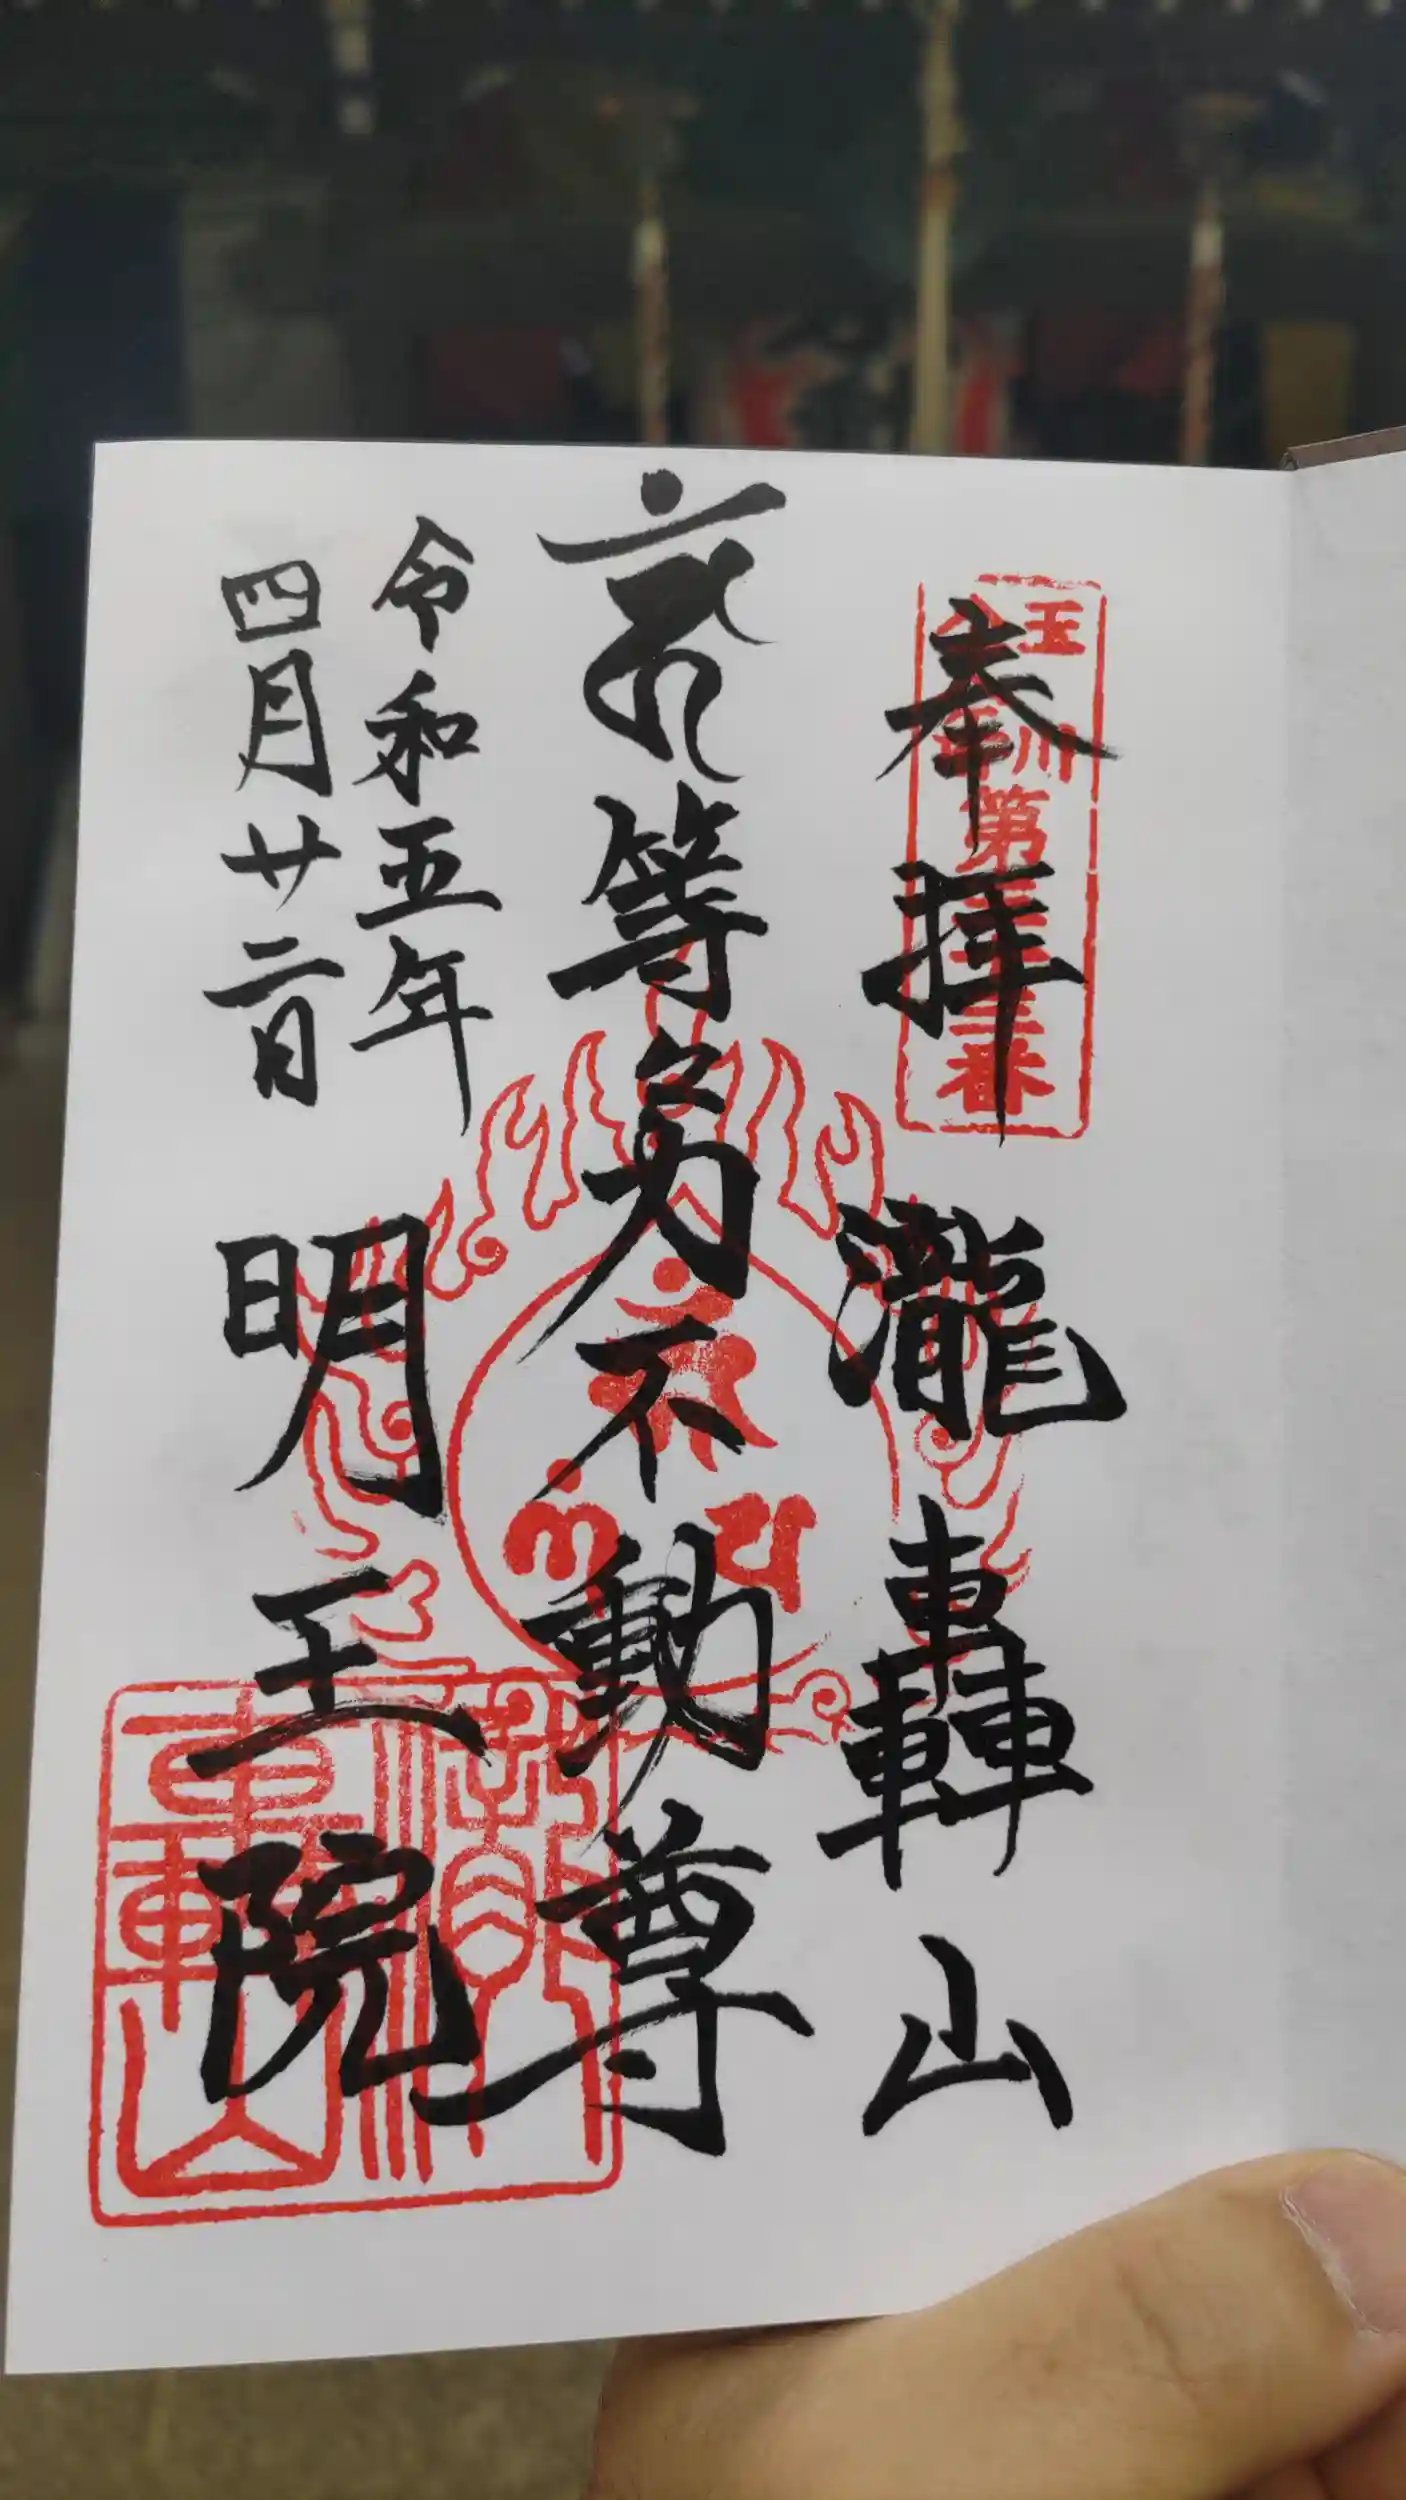 奉拝
瀧轟山
玉川
第三十三番
等々力不動尊
令和五年
四月廿二日
明王院